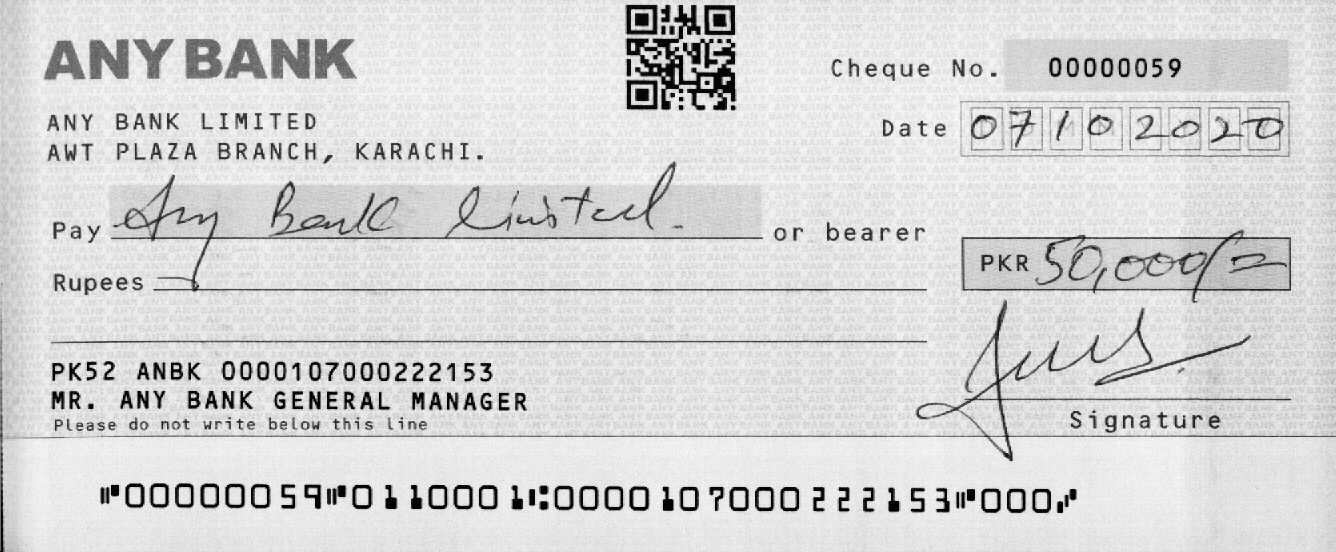 ANY BANK
Cheque No. 00000059
ANY BANK LIMITED
Date 07102020
AWT PLAZA BRANCH, KARACHI.
Pay Any Bank Limited. or bearer
PKR 50,000/=
Rupees
PK52 ANBK 0000107000222153
MR. ANY BANK GENERAL MANAGER
Please do not write below this line
Signature
⑈00000059⑈0110001⑆0000107000222153⑈000⑇